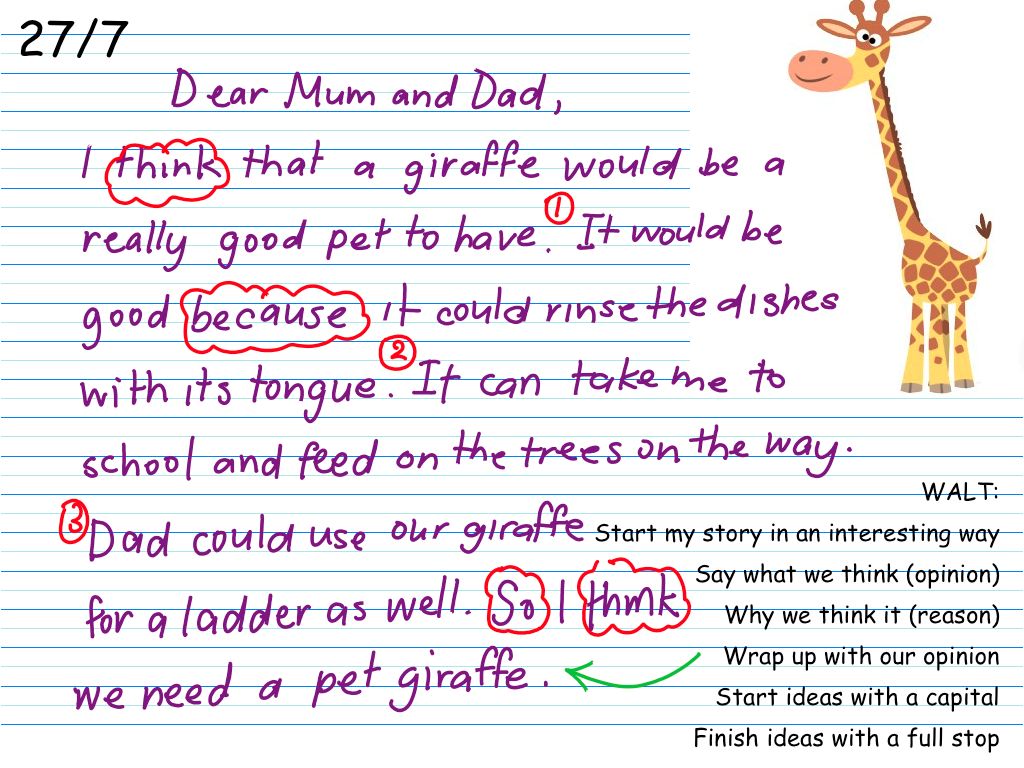 27/7
Dear Mum and Dad,
I think that a giraffe would be a
really good pet to have. ① It would be
good because it could rinse the dishes
with its tongue. ② It can take me to
school and feed on the trees on the way.
③ Dad could use our giraffe
for a ladder as well. So I think
we need a pet giraffe.
WALT:
Start my story in an interesting way
Say what we think (opinion)
Why we think it (reason)
Wrap up with our opinion
Start ideas with a capital
Finish ideas with a full stop